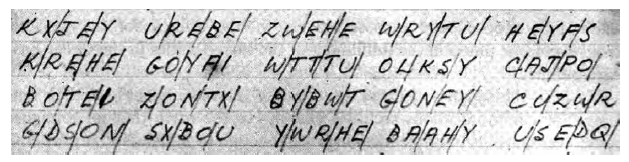 KXJEY UREBE ZWEHE WRYTU HEYFS
KREHE GOYFI WTTTU OLKSY CAJPO
BOTEI ZONTX BYBWT GONEY CUZWR
GDSON SXBOU YWRHE BAAHY USEDQ